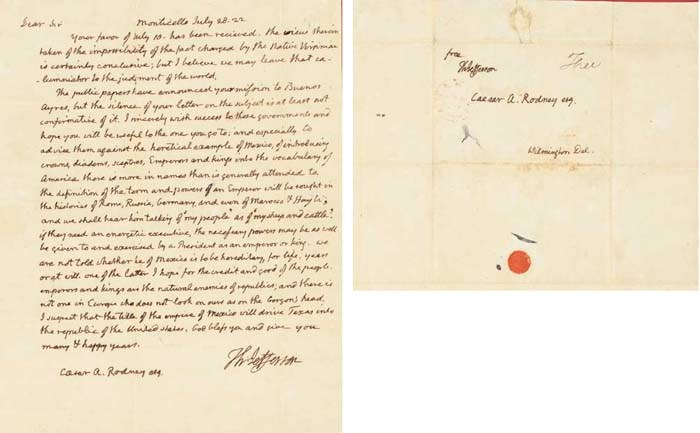 Dear Sir Monticello July 28. 22
Your favor of July 10. has been recieved. the view therein
taken of the impossibility of the fact charged by the Native Virginian
is certainly conclusive; but I believe we may leave that ca-
-lumniator to the judgment of the world.
The public papers have announced your mission to Buenos
Ayres, but the silence of your letter on the subject is at least not
confirmative of it. I sincerely wish success to those governments and
hope you will be useful to the one you go to; and especially to
advise them against the heretical example of Mexico, of introducing
crowns, diadems, scepters, Emperors and kings into the vocabulary of
America. there is more in names than is generally attended to
the definition of the term and powers of an Emperor will be sought in
the histories of Rome, Russia, Germany, and even of Marocco & Hayti,
and we shall hear him talking of "my people" as of "my sheep and cattle."
if they need an energetic executive, the necessary powers may be as well
be given to and exercised by a President as an emperor or king. we
are not told whether he of Mexico is to be hereditary, for life, years
or at will. one of the latter I hope for the credit and good of the people.
emperors and kings are the natural enemies of republics; and there is
not one in Europe who does not look on ours as on the Gorgon's head.
I suspect that the title of the empire of Mexico will drive Texas into
the republic of the United States. God bless you and give you
many & happy years.
Th: Jefferson
Caesar A. Rodney esq.
free
Th: Jefferson
Free
Caesar A. Rodney esq.
Wilmington Del.